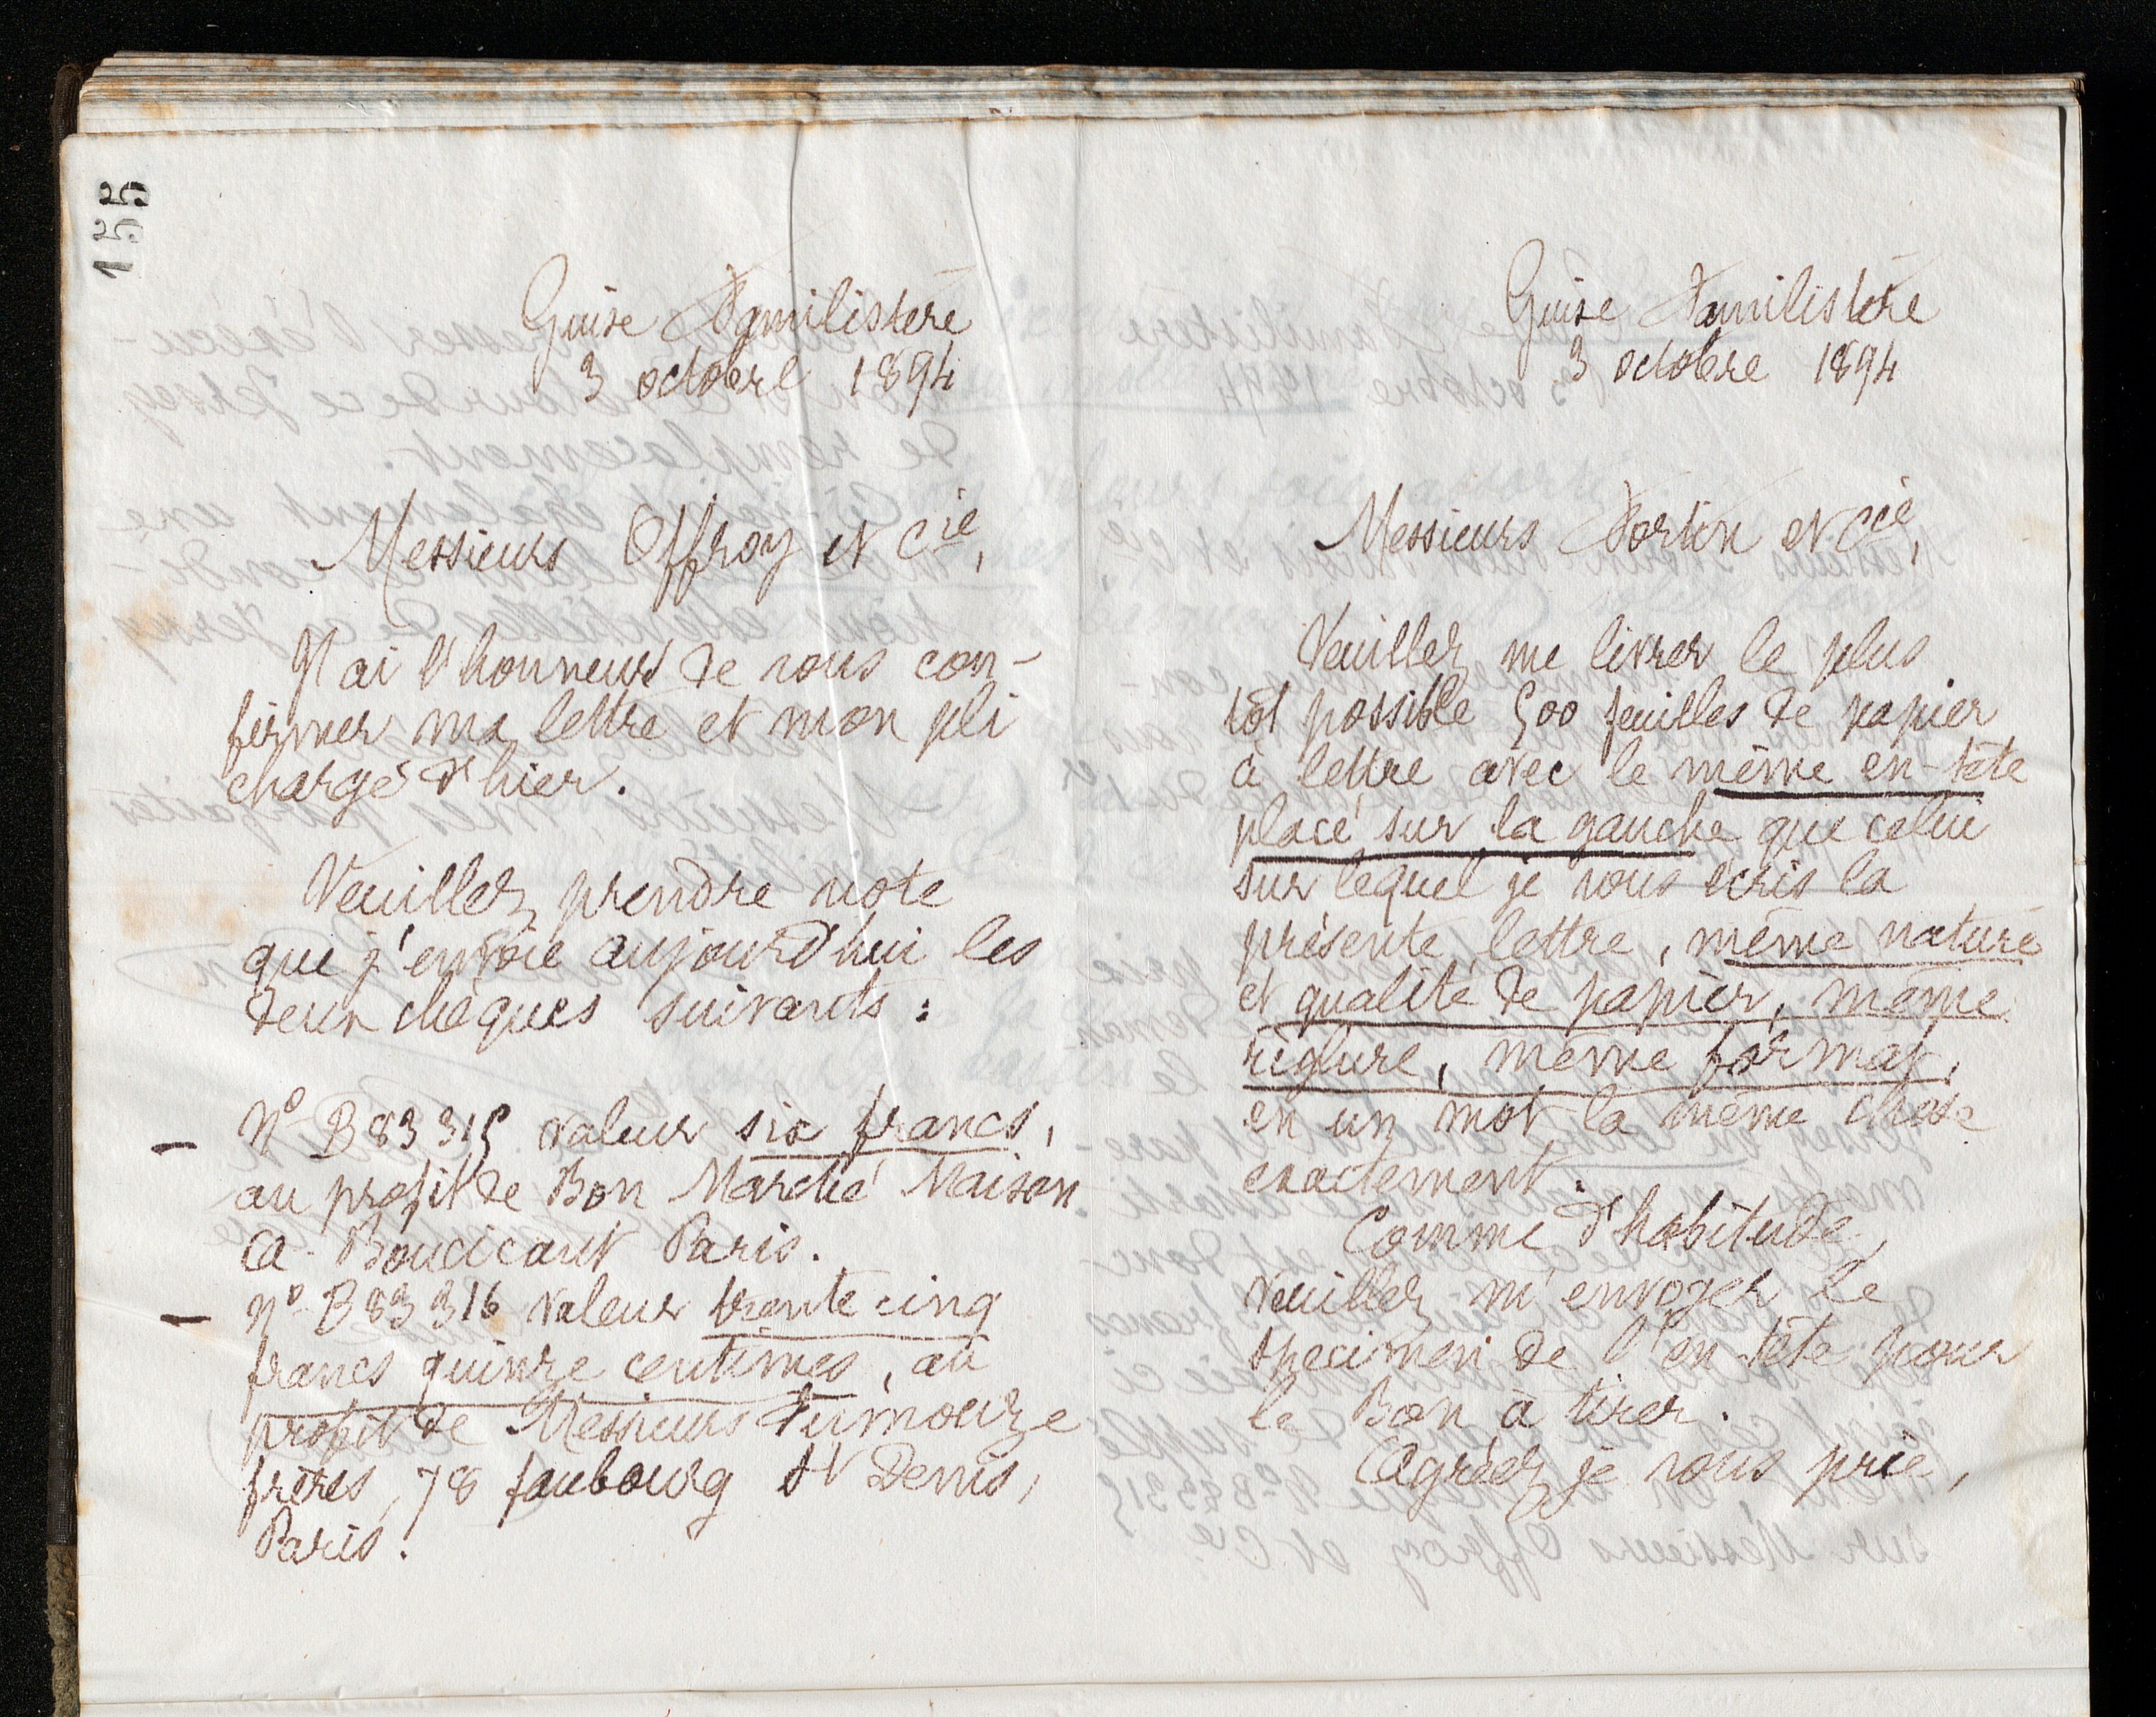 155
Guise Familistère
3 octobre 1894
Messieurs Offroy et Cie,
J'ai l'honneur de vous con-
firmer ma lettre et mon pli
chargé d'hier.
Veuillez prendre note
que j'envoie aujourd'hui les
deux chèques suivants :
— N° B 83 315 valeur six francs,
au profit de Bon Marché Maison
A. Boucicaut Paris.
— N° B 83 316 valeur trente-cinq
francs quinze centimes, au
profit de Messieurs Fumouze
frères, 78 faubourg St Denis,
Paris.
Guise Familistère
3 octobre 1894
Messieurs Fortin et Cie,
Veuillez me livrer le plus
tôt possible 500 feuilles de papier
à lettre avec le même en-tête
placé sur la gauche que celui
sur lequel je vous écris la
présente lettre, même nature
et qualité de papier, même
réglure, même format,
en un mot la même chose
exactement.
Comme d'habitude,
veuillez m'envoyer le
specimen de l'en-tête pour
le Bon à tirer.
Agréez, je vous prie,